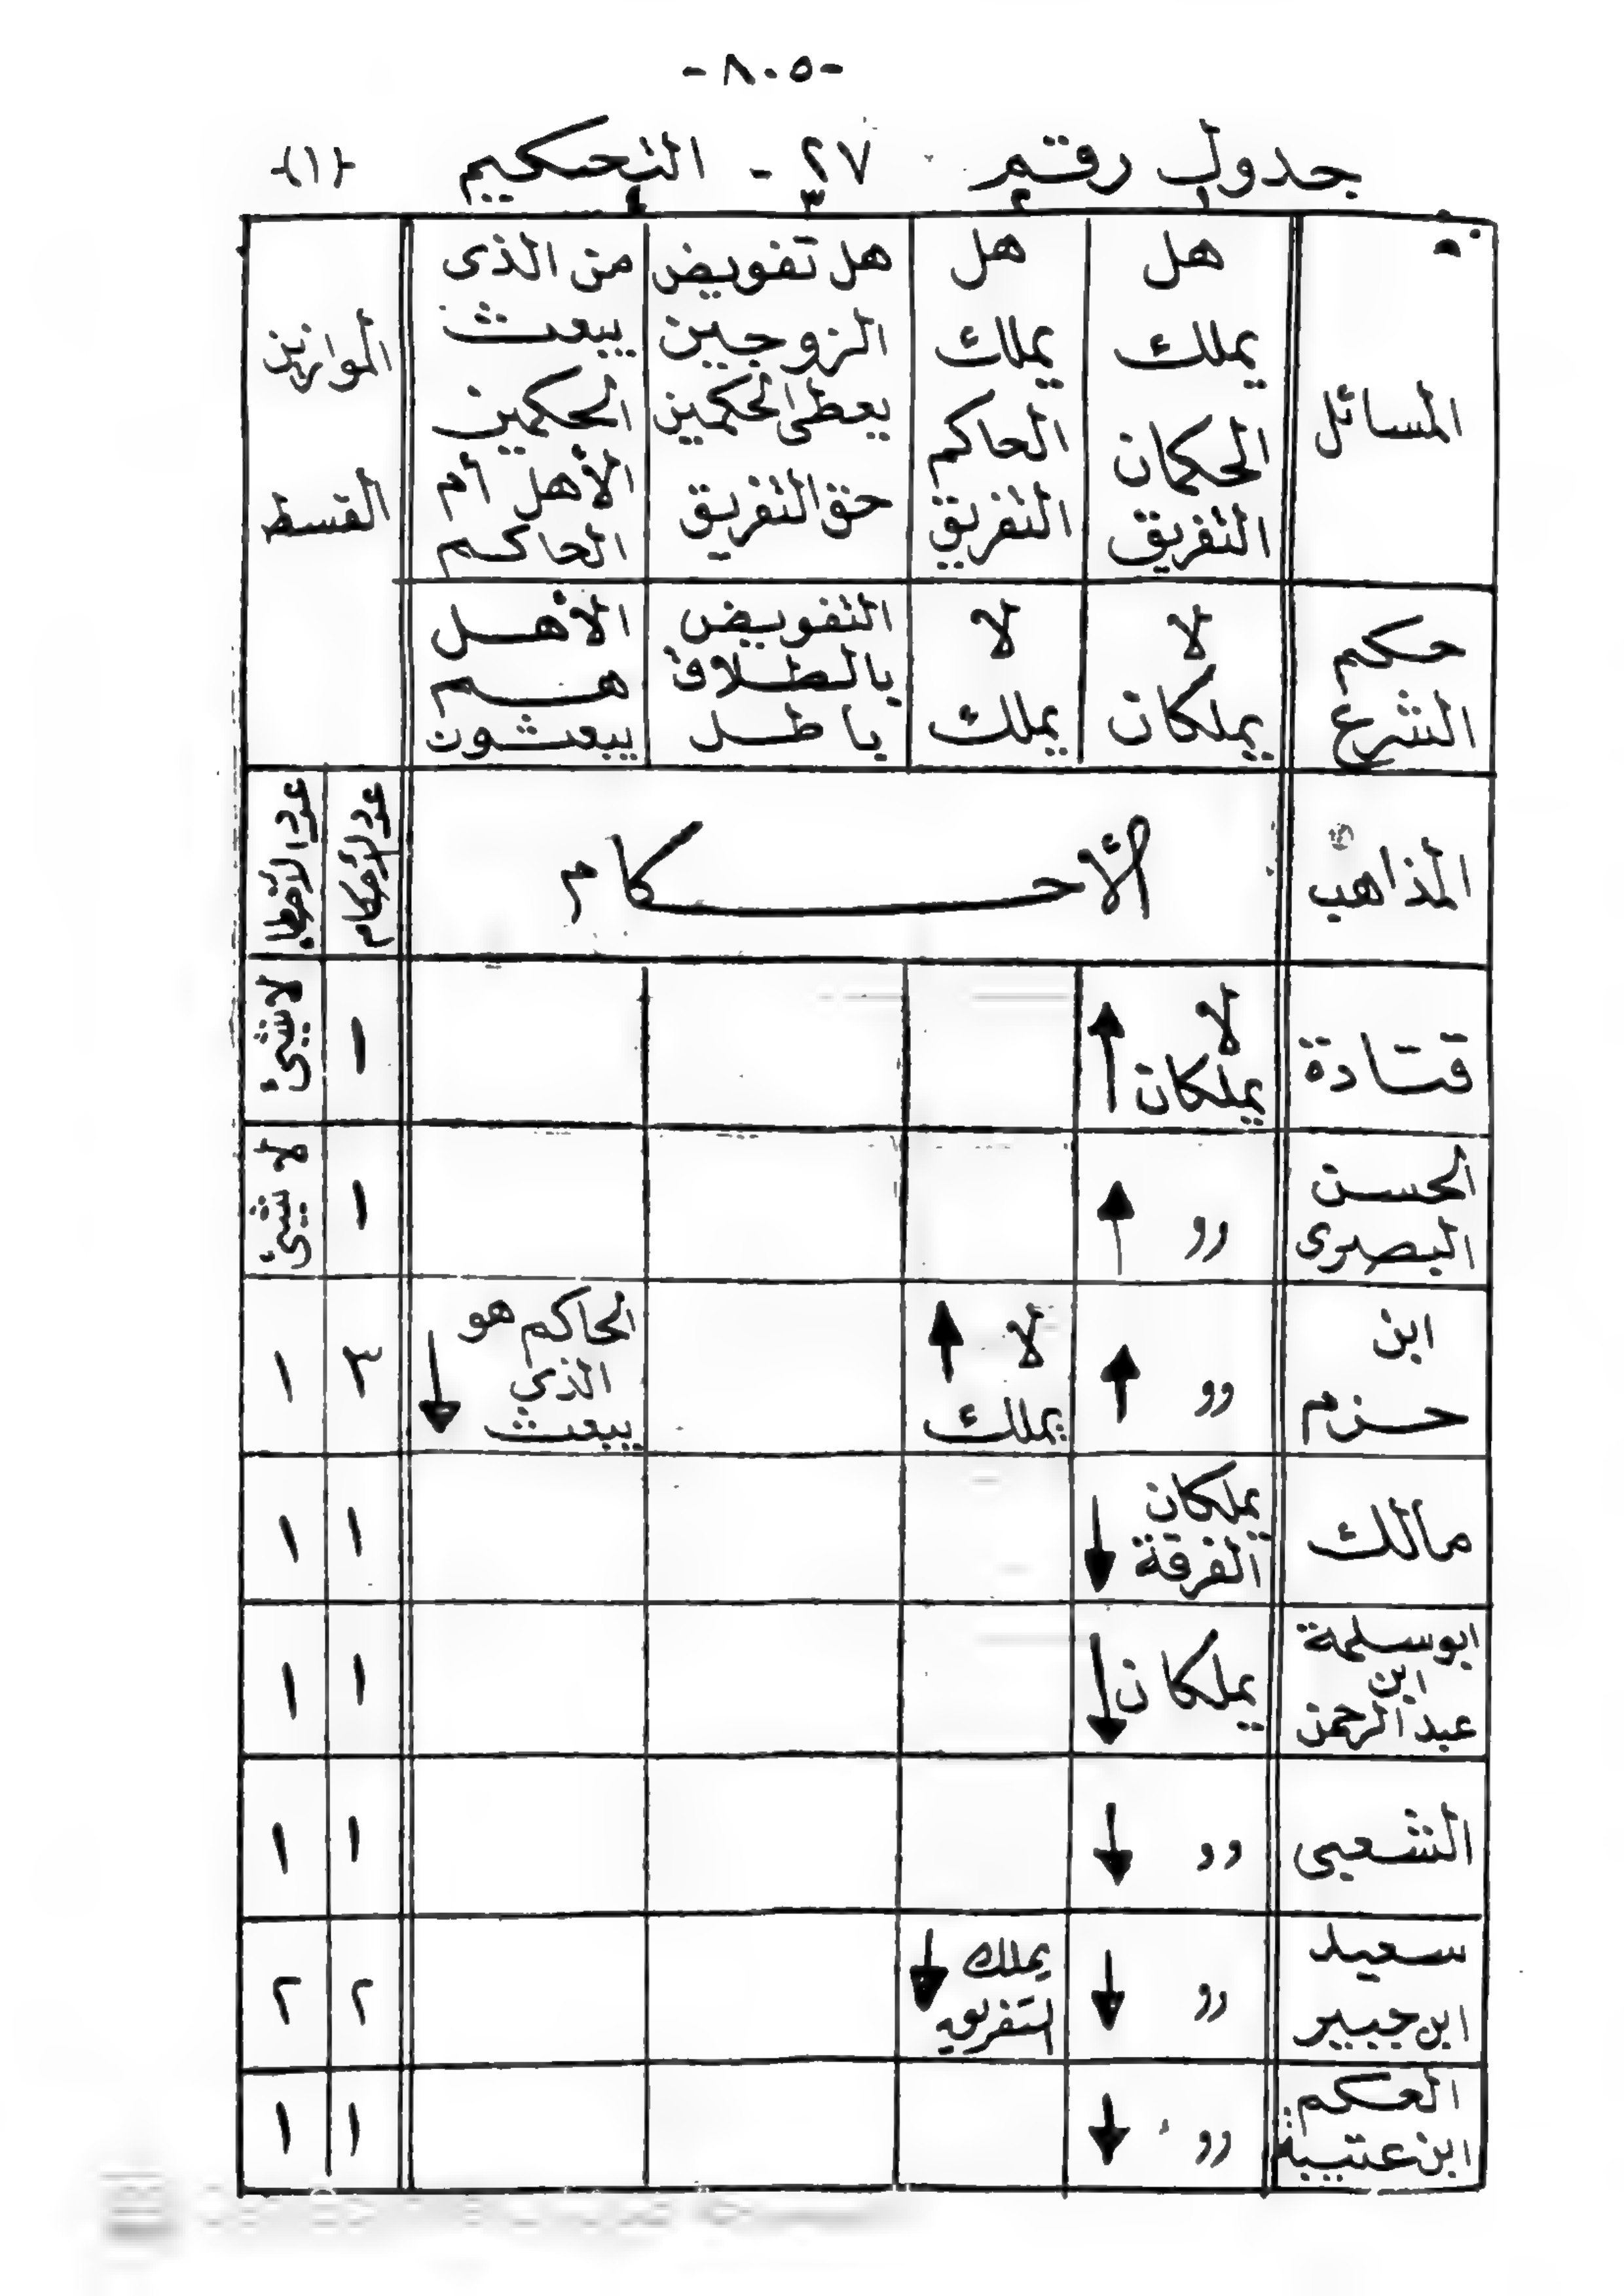 -٨٠٥-
جدول رقم ٢٧ - التحكيم -(١)-
١ ٢ ٣ ٤
المسائل
هل
يملك
الحكمان
التفريق
هل
يملك
الحاكم
التفريق
هل تفويض
الزوجين
يعطى الحكمين
حق التفريق
من الذى
يبعث
الحكمين
الأهل أم
الحاكم
الموازين
القسط
حكم
الشرع
لا
يملكان
لا
يملك
التفويض
بالطلاق
باطل
الأهل
هم
يبعثون
المذاهب
الأحكام
عدد الأحكام
عدد الأخطاء
قتادة
لا
يملكان
↑
١
لا شيئ
الحسن
البصرى
”
↑
١
لا شيئ
ابن
حزم
”
↑
لا
يملك
↑
الحاكم هو
الذي
يبعث
↓
٣
١
مالك
يملكان
الفرقة
↓
١
١
ابو سلمة
ابن
عبد الرحمن
يملكان
↓
١
١
الشعبى
”
↓
١
١
سعيد
ابن جبير
”
↓
يملك
التفريق
↓
٢
٢
الحكم
ابن عتيبة
”
↓
١
١